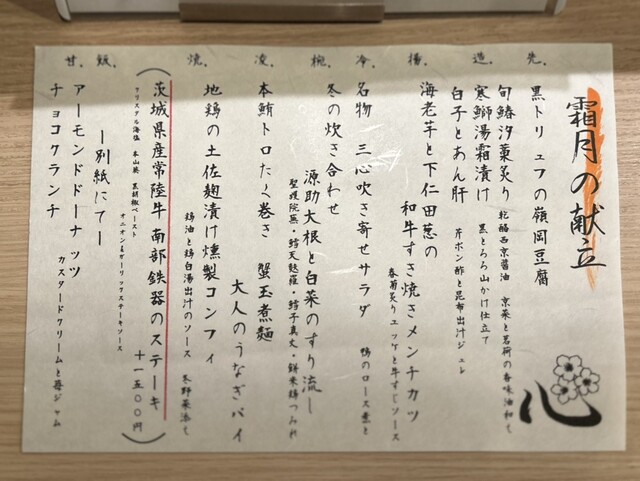 霜月の献立
心
先、 黒トリュフの嶺岡豆腐
造、 旬鰆汐藁炙り 乾酪西京醤油 京菜と茗荷の香味油和え
寒鰤湯霜漬け 黒とろろ山かけ仕立て
白子とあん肝 芹ポン酢と昆布出汁ジュレ
揚、 海老芋と下仁田葱の
和牛すき焼きメンチカツ
春菊炙りユッケと牛すじソース
冷、 名物 三心吹き寄せサラダ 鴨のロース煮と
椀、 冬の炊き合わせ
源助大根と白菜のすり流し
聖護院蕪・鱈天麩羅・鱈子真丈・餅米鶏つみれ
凌、 本鮪トロたく巻き 蟹玉煮麺
大人のうなぎパイ
焼、 地鶏の土佐麹漬け燻製コンフィ
鶏油と鶏白湯出汁のソース 冬野菜添え
(茨城県産常陸牛 南部鉄器のステーキ 十一五〇〇円)
クリスタル海塩 本山葵 黒胡椒ペースト
オニオン&ガーリックステーキソース
飯、 ー別紙にてー
甘、 アーモンドドーナッツ
カスタードクリームと苺ジャム
チョコクランチ